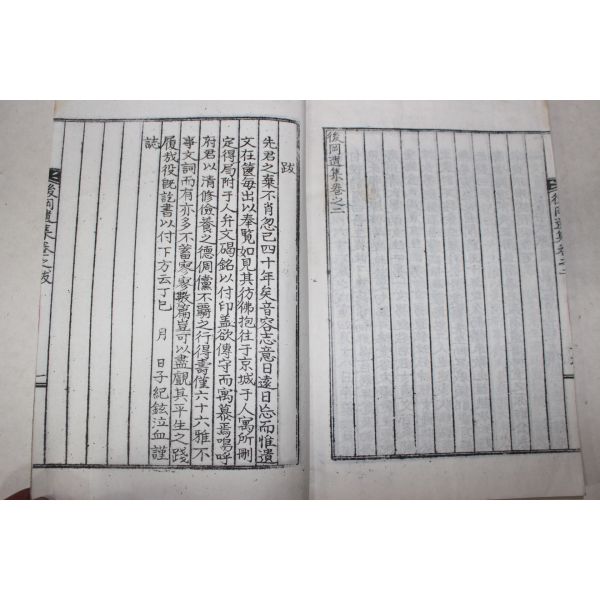 後岡遺集卷之二
後岡遺集卷之二
跋
先君之棄不肖忽已四十年矣音容志意日遠日忘而惟遺
文在篋每出以奉覧如見其彷彿抱往于京城于人寓所刪
定得局附于人弁文碣銘以付印盖欲傳守而寓慕焉嗚呼
府君以清修儉養之德倜儻不羈之行得壽僅六十六雅不
事文詞而有亦多不蓄寥寥數篇豈可以盡觀其平生之踐
履哉役旣訖書以付下方云丁巳 月 日子紀鉉泣血謹
誌
後岡遺集卷之跋 一